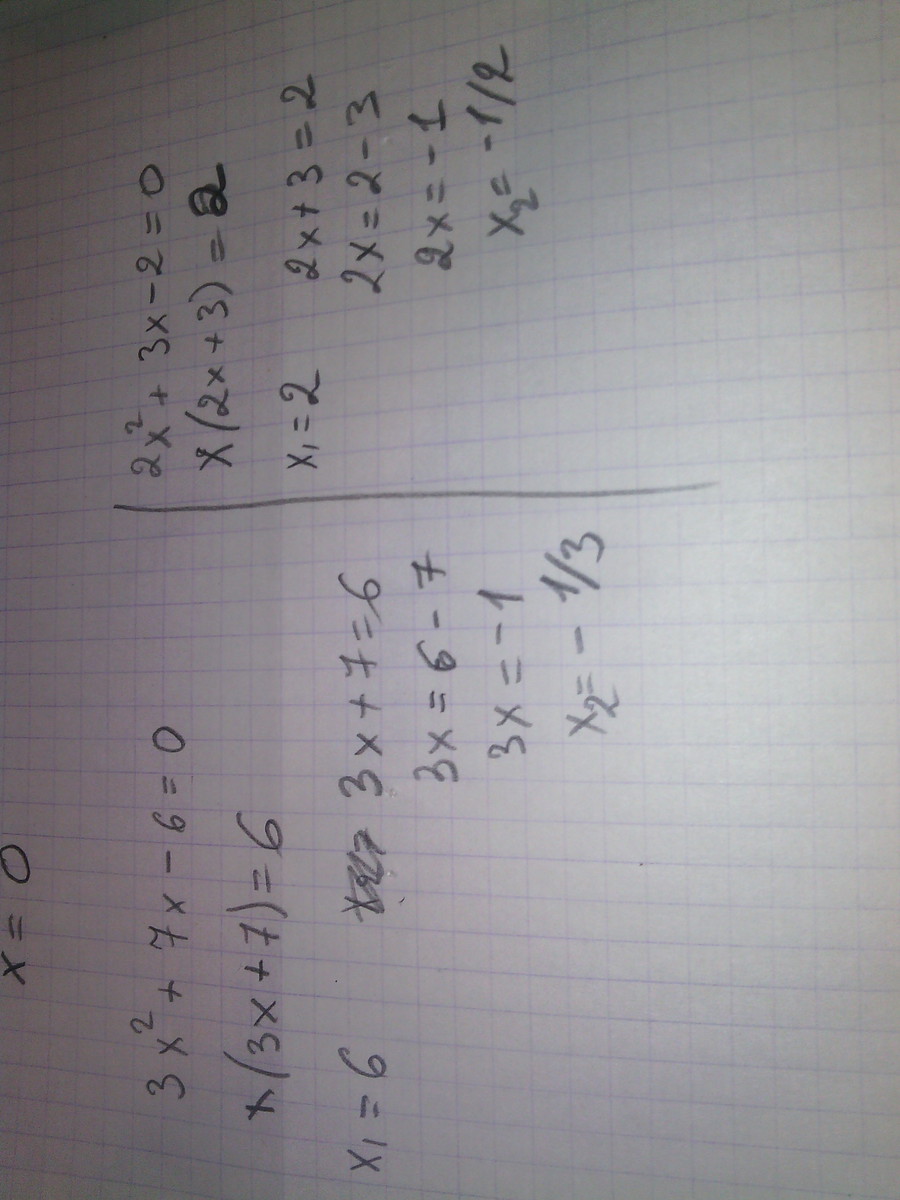 x = 0
3x² + 7x - 6 = 0
x(3x + 7) = 6
x₁ = 6
3x + 7 = 6
3x = 6 - 7
3x = -1
x₂ = - 1/3
2x² + 3x - 2 = 0
x(2x + 3) = 2
x₁ = 2
2x + 3 = 2
2x = 2 - 3
2x = -1
x₂ = -1/2